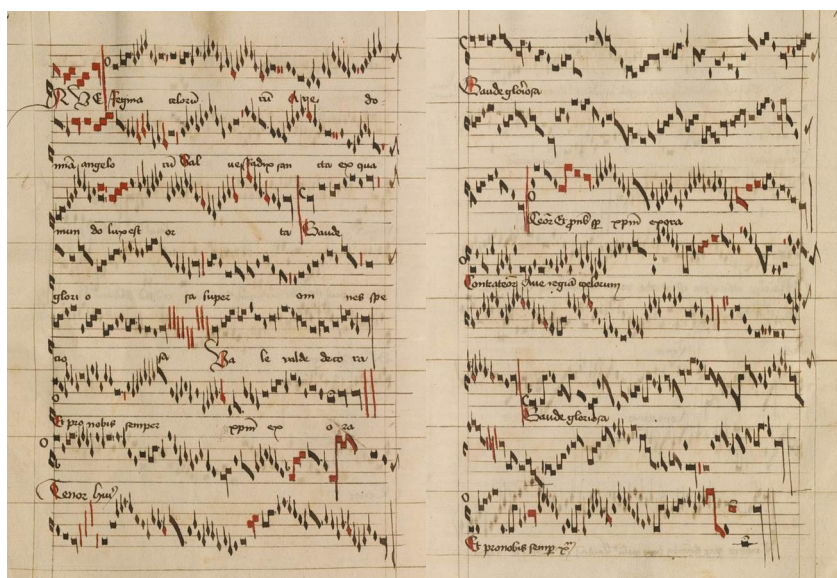 AVE Regina celorū aue do
mīa angelo rū Sal ue radix san cta ex qua
mun do lux est or ta Gaude
glori o sa super om nes spe
cio sa Va le valde deco ra
Et pro nobis semper xp̄m ex o ra
Tenor hui9
Gaude gloriosa
Teor Et pnob sp xp̄m exora
Contrateor Aue regīa celorum
Gaude gloriosa
Et pronobis semp xp̄